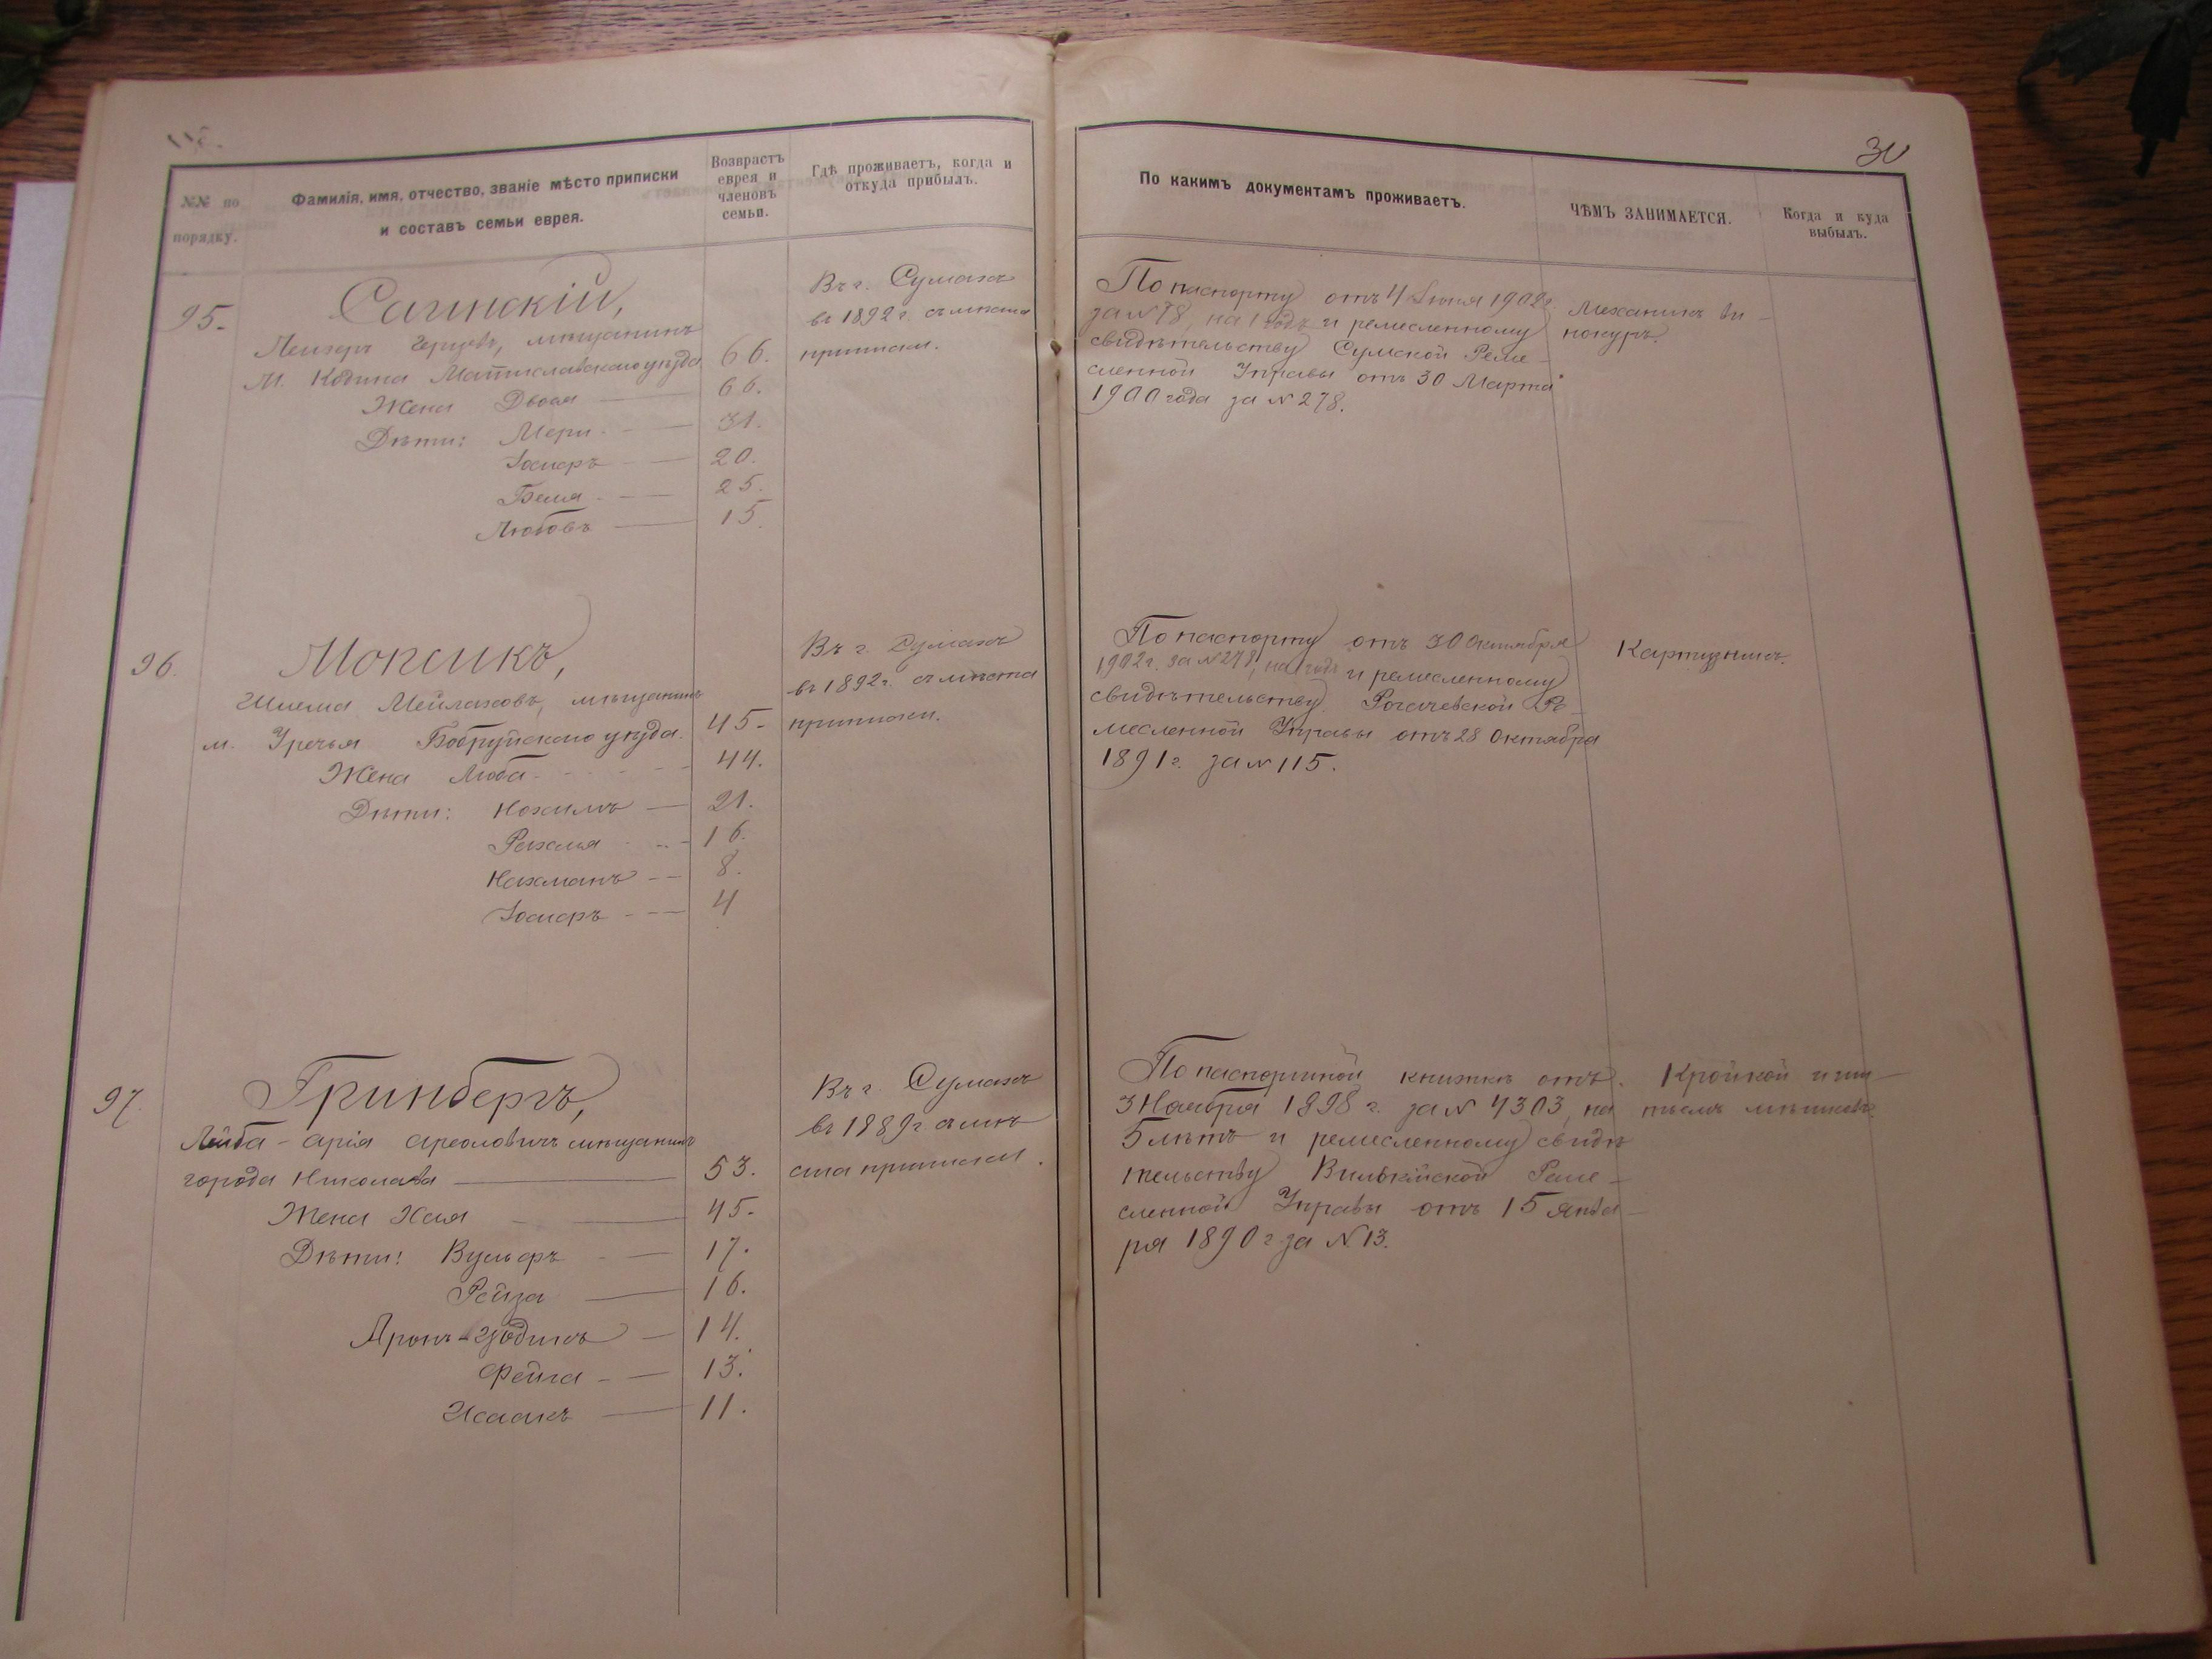 30
№№ по порядку.
Фамилія, имя, отчество, званіе мѣсто приписки
и составъ семьи еврея.
Возврастъ
еврея и
членовъ
семьи.
Гдѣ проживаетъ, когда и
откуда прибылъ.
По какимъ документамъ проживаетъ.
ЧѢМЪ ЗАНИМАЕТСЯ.
Когда и куда
выбылъ.
95.
Сагинскій,
Лейзеръ Герцовъ, мѣщанинъ
м. Мстиславскаго уѣзда 66.
Жена Двося 66.
Дѣти: Мери 31.
Іосифъ 20.
Бася 25.
Любовь 15.
Въ г. Сумахъ
въ 1892 г. съ мѣста
приписки.
По паспорту отъ 4 Іюня 1902 г.
за № 78, на 1 годъ и ремесленному
свидѣтельству Сумской Реме-
сленной Управы отъ 30 Марта
1900 года за № 278.
Механикъ ви-
нокуръ.
96.
Мопсикъ,
Шлема Мейлаховъ, мѣщанинъ
м. Уречья Бобруйскаго уѣзда. 45.
Жена Люба 44.
Дѣти: Нохимъ 21.
Рахиля 16.
Нахманъ 8.
Іосифъ 4
Въ г. Сумахъ
въ 1892 г. съ мѣста
приписки.
По паспорту отъ 30 Октября
1902 г. за № 278, на годъ и ремесленному
свидѣтельству Рогачевской Ре-
месленной Управы отъ 28 Октября
1891 г. за № 115.
Картузникъ.
97.
Гринбергъ,
Лейба-Арія мѣщанинъ
города Николаева 53.
Жена Хая 45.
Дѣти: Вульфъ 17.
Рейза 16.
Аронъ- 14.
Фейга 13.
Исаакъ 11.
Въ г. Сумахъ
въ 1889 г. съ мѣ
ста приписки.
По паспортной книжкѣ отъ
3 Ноября 1898 г. за № 4303, на
5 лѣтъ и ремесленному свидѣ
тельству Вилькійской Реме-
сленной Управы отъ 15 Янва-
ря 1890 г. за № 13.
Кройкой и ши-
тьемъ мѣшковъ.